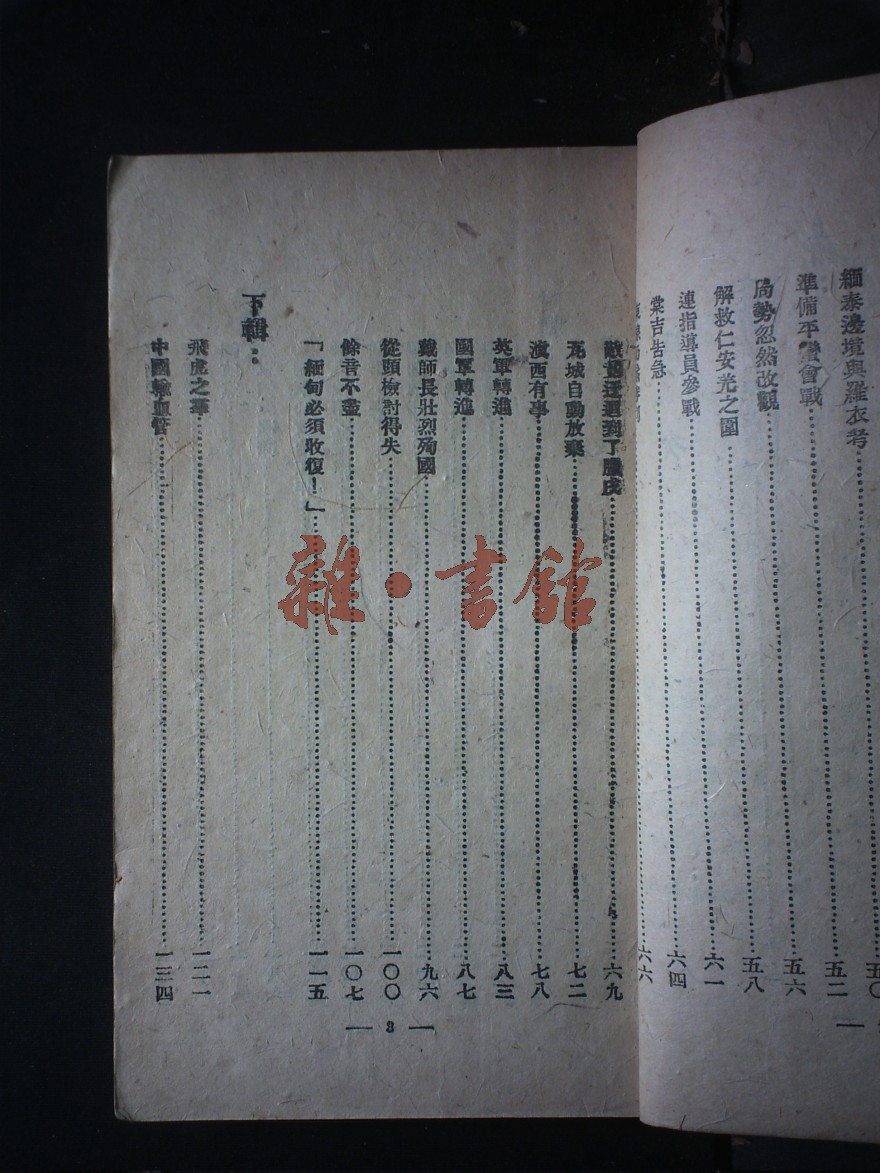 五〇
緬泰邊境與羅衣考 五二
準備平蠻會戰 五六
局勢忽然改觀 五八
解救仁安羌之圍 六一
連指導員參戰 六四
棠吉告急
六六
敵 迂迴到了臘戌 六九
瓦城自動放棄 七二
滇西有事 七八
英軍轉進 八三
國軍轉進 八七
戴師長壯烈殉國 九六
從頭檢討得失 一〇〇
餘音不盡 一〇七
「緬甸必須收復！」 一一五
下輯：
飛虎之羣 一二一
中國輸血管 一三四
— 3 —
雜·書館